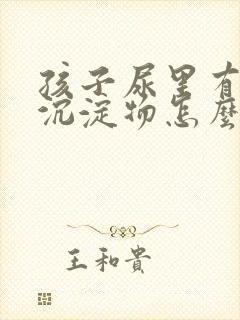 孩子尿里有
沉淀物怎麼
王和貴